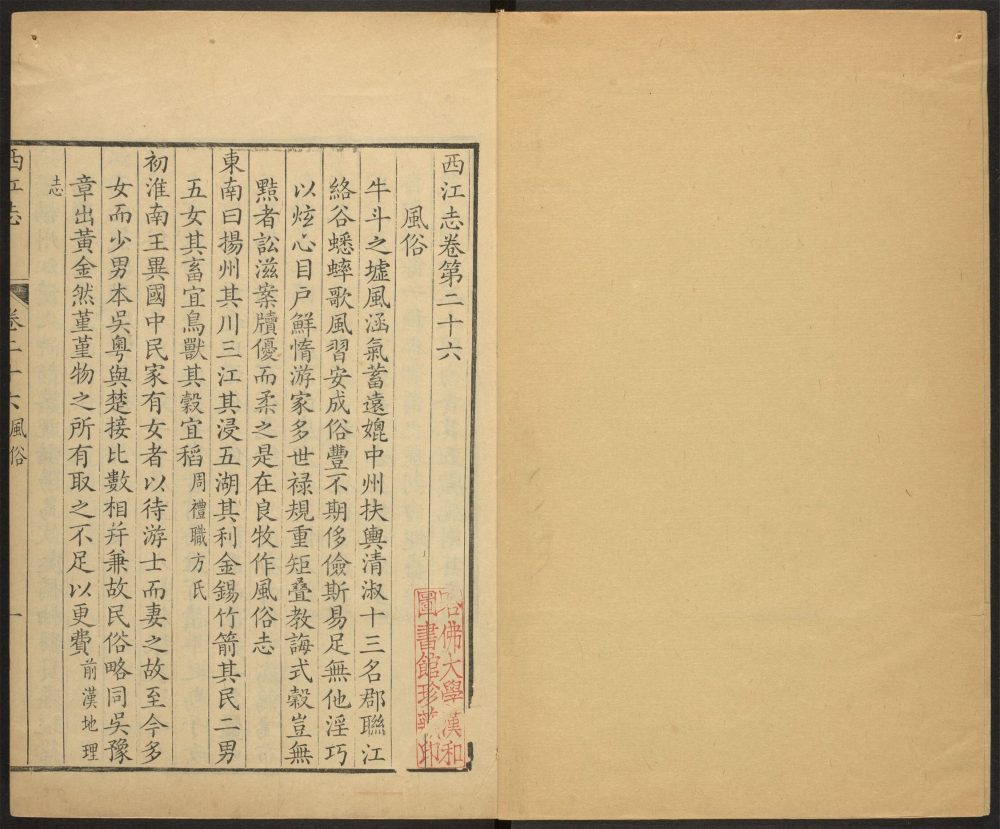 西江志卷第二十六
風俗
牛斗之墟風涵氣蓄遠媲中州扶輿清淑十三名郡聯江
絡谷蟋蟀歌風習安成俗豐不期侈儉斯易足無他淫巧
以炫心目戶鮮惰游家多世祿規重矩疊教誨式穀豈無
黠者訟滋案牘優而柔之是在良牧作風俗志
東南曰揚州其川三江其浸五湖其利金錫竹箭其民二男
五女其畜宜鳥獸其穀宜稻周禮職方氏
初淮南王異國中民家有女者以待游士而妻之故至今多
女而少男本吳粵與楚接比數相幷兼故民俗略同吳豫
章出黃金然堇堇物之所有取之不足以更費前漢地理
志
西江志 卷二十六 風俗 一
哈佛大學漢和
圖書館珍藏印